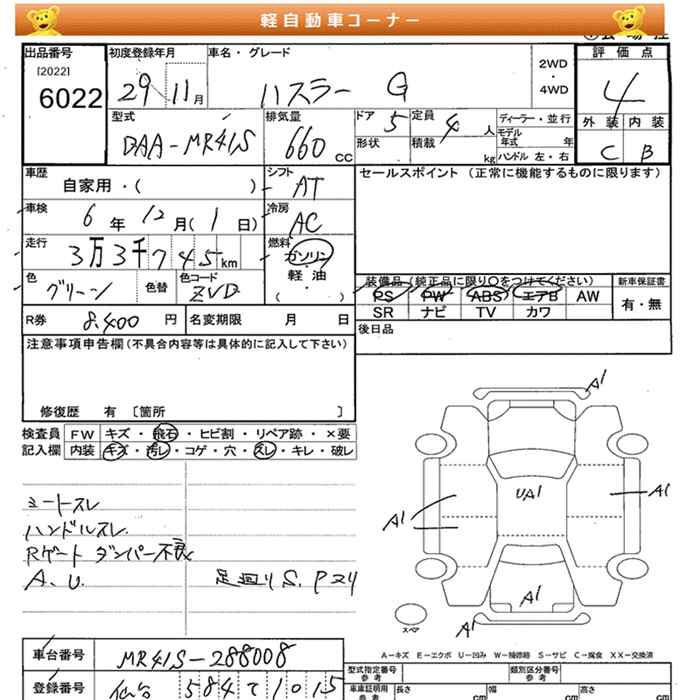 軽自動車コーナー
出品番号 初度登録年月 車名・グレード 2WD・4WD 評価点
[2022] 6022 29 11月 ハスラー G 4
型式 排気量 ドア 5 定員 4人 ディーラー・並行 外装 内装
DAA-MR41S 660cc 形状 積載 kg モデル年式 年 C B
ハンドル 左・右
車歴 シフト セールスポイント (正常に機能するものに限ります)
自家用・( ) AT
車検 6年 12月(1日) 冷房 AC
走行 3万3千745km 燃料 ガソリン
軽・油
・
( )
色 グリーン 色替 色コード ZVD
装備品 (純正品に限り〇をつけてください) 新車保証書
PS PW ABS エアB AW 有・無
SR ナビ TV カワ
R券 8,400円 名変期限 月 日 後日品
注意事項申告欄(不具合内容等は具体的に記入して下さい)
修復歴 有 〔箇所 〕
検査員 FW キズ・飛石・ヒビ割・リペア跡・×要
記入欄 内装 キズ・汚レ・コゲ・穴・スレ・キレ・破レ
シートスレ
ハンドルスレ
Rゲートダンパー不良
A.U. 足廻りS.P24
A1
UA1
A1
A1
A1
A1
スペア
A-キズ E-エクボ U-凹み W-補修箇 S-サビ C-腐食 XX-交換済
車台番号 MR41S-288008
登録番号 仙台 584 1015
型式指定番号 参考 類別区分番号 参考
車庫証明用 参考 長さ cm 幅 cm 高さ cm